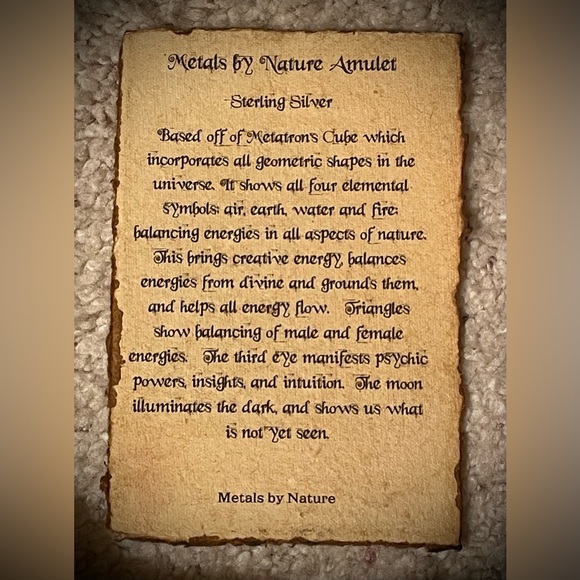 Metals by Nature Amulet
Sterling Silver
Based off of Metatron's Cube which
incorporates all geometric shapes in the
universe. It shows all four elemental
symbols: air, earth, water and fire;
balancing energies in all aspects of nature.
This brings creative energy, balances
energies from divine and grounds them,
and helps all energy flow. Triangles
show balancing of male and female
energies. The third eye manifests psychic
powers, insights, and intuition. The moon
illuminates the dark, and shows us what
is not yet seen.
Metals by Nature